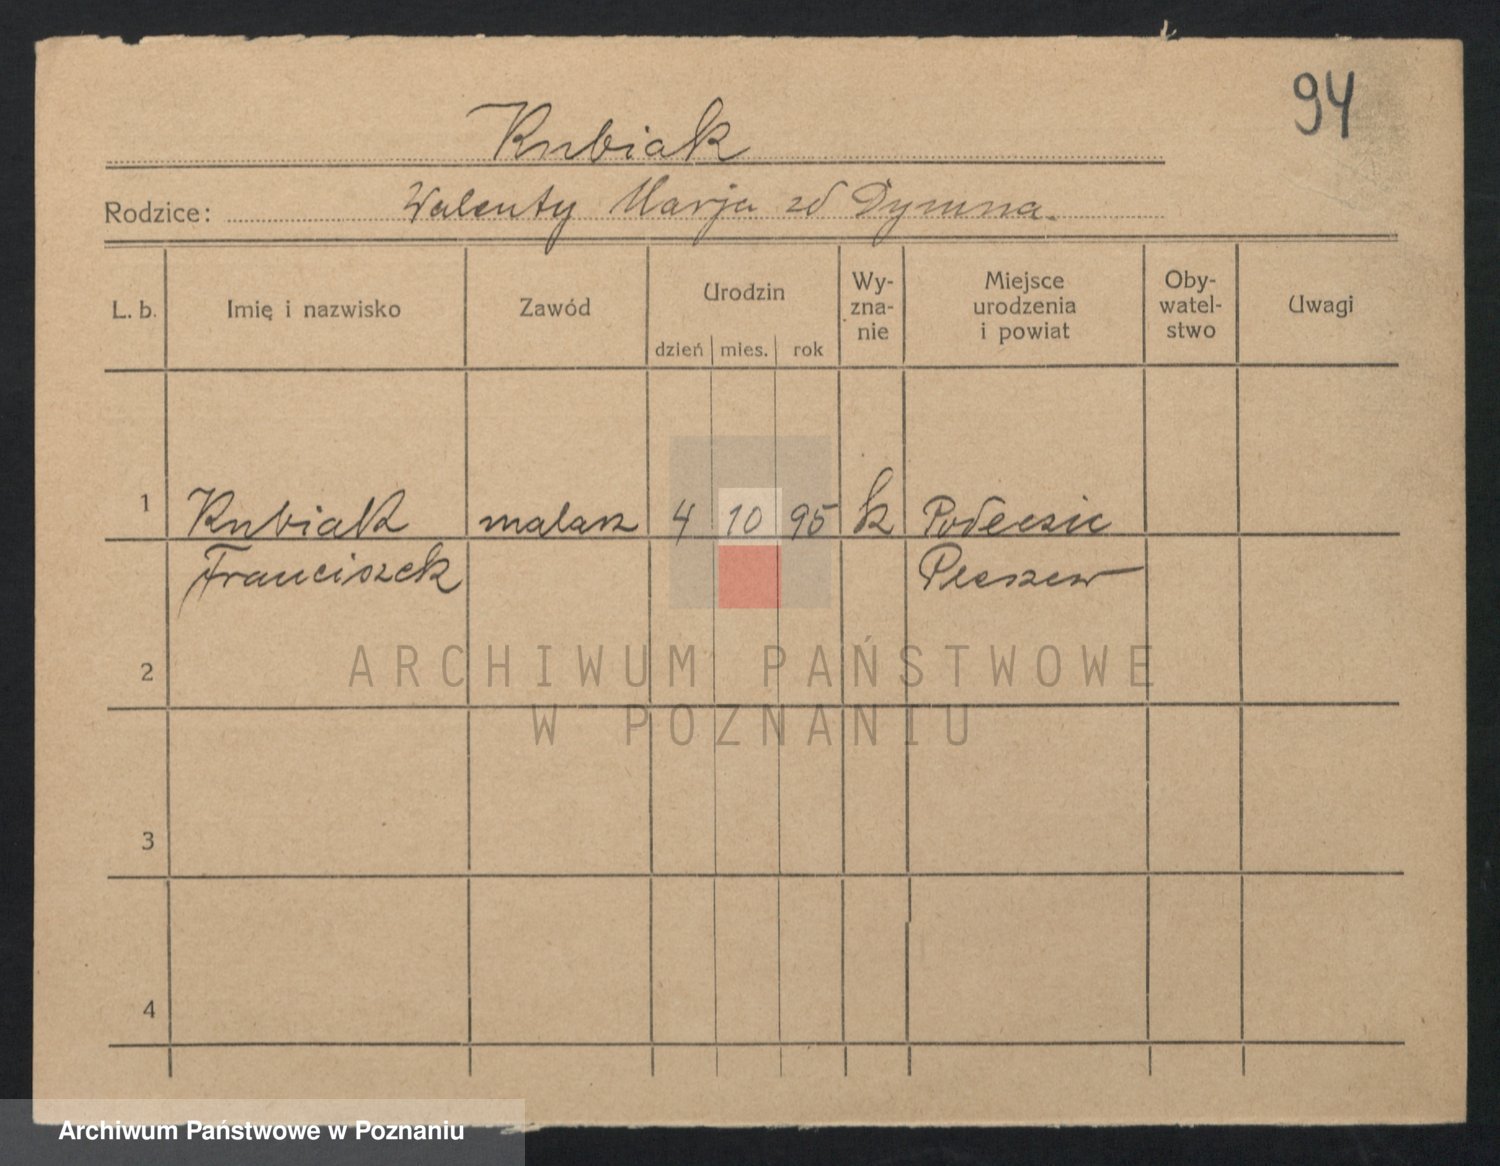 94
Kubiak
Rodzice: Walenty Marja zd Dymna.
L. b.
Imię i nazwisko
Zawód
Urodzin
dzień mies. rok
Wy-
zna-
nie
Miejsce
urodzenia
i powiat
Oby-
watel-
stwo
Uwagi
1 Kubiak malarz 4 10 95 k
Franciszek Pleszew
2
ARCHIWUM PAŃSTWOWE
W POZNANIU
3
4
Archiwum Państwowe w Poznaniu